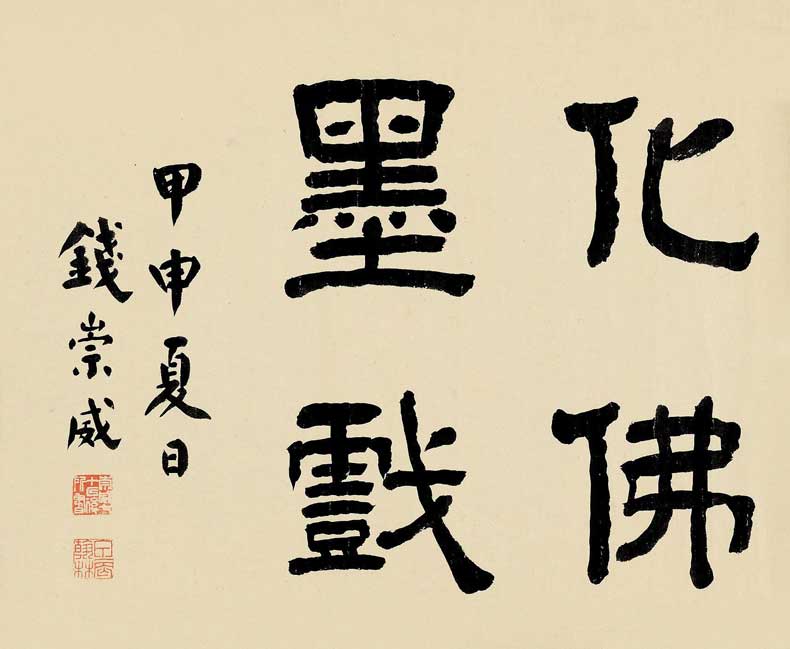 化佛
墨戲
甲申夏日
錢崇威